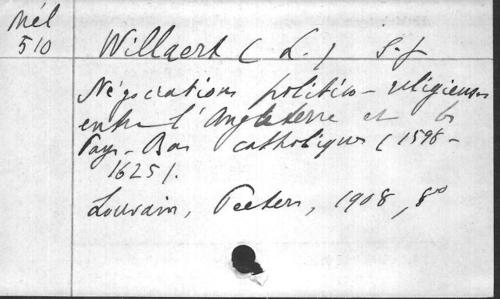 Mél
510
Willaert (L.) S.J
Négociations politico-religieuses
entre l'Angleterre et les
Pays-Bas catholiques (1598-
1625).
Louvain, Peeters, 1908, 8°